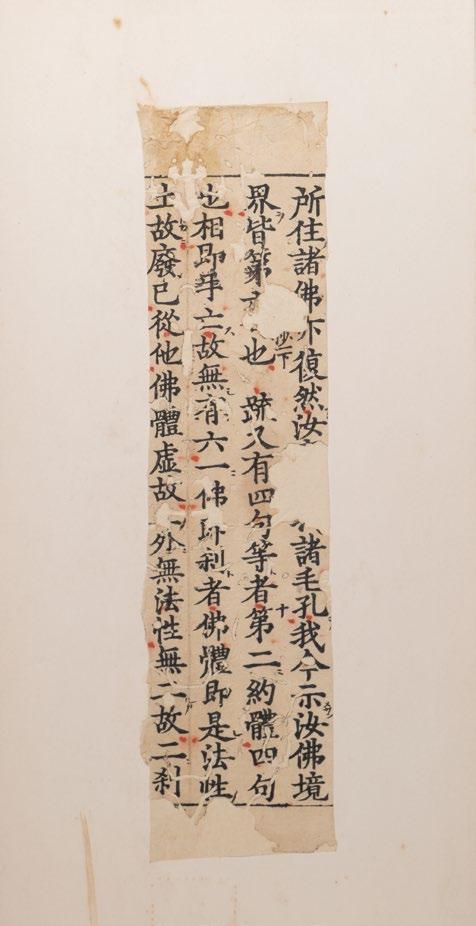 所住諸佛亦復然汝諸毛孔我今示汝佛境
界皆第也疏又有四句等者第二約體四句
也相即亡故無六一佛即刹者佛體即是法性
土故廢已從他佛體虛故外無法性無二故二刹